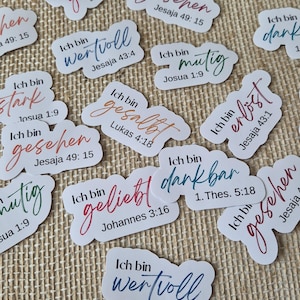 gesehen
Jesaja 49: 15
Jesaja 49: 15
Ich bin
wertvoll
Jesaja 43:4
Ich bin
mutig
Josua 1:9
Ich bin
dankbar
Ich bin
stark
Josua 1:9
Ich bin
gesalbt
Lukas 4:18
Ich bin
erlöst
Jesaja 43:1
Ich bin
gesehen
Jesaja 49: 15
mutig
Josua 1:9
Ich bin
geliebt
Johannes 3:16
Ich bin
dankbar
1.Thes. 5:18
Ich bin
gesehen
Jesaja
Ich bin
wertvoll